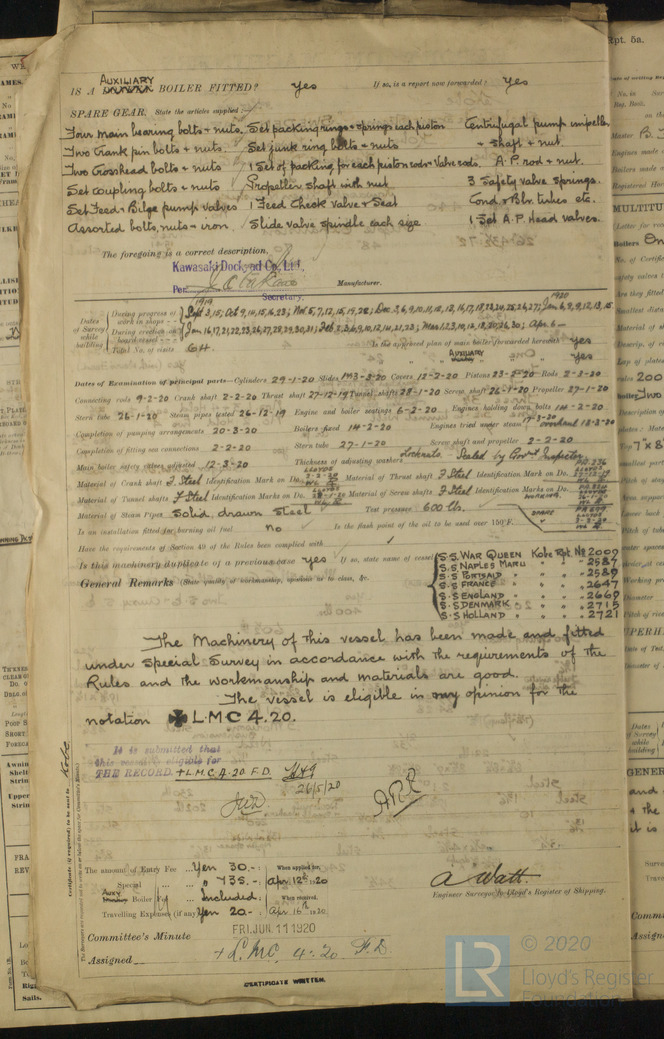 Rpt. 5a.
AUXILIARY
IS A BOILER FITTED? Yes If so, is a report now forwarded? Yes
SPARE GEAR. State the articles supplied
Four Main bearing bolts & nuts. Set packing rings & springs each piston Centrifugal pump impeller
Two Crank pin bolts & nuts. Set junk ring bolts & nuts " shaft & nut
Two Crosshead bolts & nuts 1 Set of packing for each piston rod & valve rods. A.P. rod & nut.
Set coupling bolts & nuts Propeller shaft with nut 3 Safety valve springs.
Set Feed & Bilge pump valves 1 Feed Check Valve & Seat Cond. & Blr. tubes etc.
Assorted bolts, nuts & iron Slide valve spindle each size 1 Set A.P. Head valves.
The foregoing is a correct description,
Kawasaki Dockyard Co., Ltd.
Per Manufacturer.
Secretary.
Dates of Survey while building
During progress of work in shops -- 1919 Sept 3,15; Oct 9,14,15,16,23; Nov. 5,7,12,15,19,28; Dec
During erection on board vessel --- Jan 16,17,21,22,23,26,27,28,29,30,31; Feb
Total No. of visits 64 Is the approved plan of main boiler forwarded herewith Yes
" " " AUXILIARY " " " Yes
Dates of Examination of principal parts—Cylinders 29-1-20 Slides 1-3-20 Covers 12-2-20 Pistons 23-2-20 Rods 2-3-20
Connecting rods 9-2-20 Crank shaft 2-2-20 Thrust shaft 27-12-19 Tunnel shafts 28-1-20 Screw shaft 26-1-20 Propeller 27-1-20
Stern tube 26-1-20 Steam pipes tested 26-12-19 Engine and boiler seatings 6-2-20 Engines holding down bolts 14-2-20
Completion of pumping arrangements 20-3-20 Boilers fixed 14-2-20 Engines tried under steam 18-3-20
Completion of fitting sea connections 2-2-20 Stern tube 27-1-20 Screw shaft and propeller 2-2-20
Main boiler safety valves adjusted 12-3-20 Thickness of adjusting washers Locknuts Sealed by Govt Inspector
Material of Crank shaft I. Steel Identification Mark on Do. Material of Thrust shaft I. Steel Identification Mark on Do.
Material of Tunnel shafts I. Steel Identification Marks on Do. Material of Screw shafts I. Steel Identification Marks on Do.
Material of Steam Pipes Solid drawn steel Test pressure 600 lbs.
Is an installation fitted for burning oil fuel no Is the flash point of the oil to be used over 150°F.
Have the requirements of Section 49 of the Rules been complied with
Is this machinery duplicate of a previous case Yes If so, state name of vessel S.S. WAR QUEEN Kobe Rpt. No 2009
S.S NAPLES MARU " " " 2587
S.S PORTSAID " " " 2589
S.S FRANCE " " " 2647
S.S ENGLAND " " " 2669
S.S DENMARK " " " 2715
S.S HOLLAND " " " 2721
General Remarks (State quality of workmanship, opinions as to class, &c.
The Machinery of this vessel has been made and fitted
under Special Survey in accordance with the requirements of the
Rules and the workmanship and materials are good.
The vessel is eligible in my opinion for the
notation ✠ L.M.C 4.20.
It is submitted that
this vessel is eligible for
THE RECORD. + L.M.C. 4.20. F.D.
26/5/20
Kobe
The amount of Entry Fee ... Yen 30.-: When applied for,
Special ... ... " 735.-: Apr. 12th 1920
Auxy Boiler Fee ... Included: When received,
Travelling Expenses (if any) Yen 20.-: Apr. 16th 1920
A Watt.
Engineer Surveyor to Lloyd's Register of Shipping.
Committee's Minute FRI. JUN. 11 1920
Assigned + L.M.C. 4.20 F.D.
CERTIFICATE WRITTEN.
LR
© 2020
Lloyd's Register
Foundation